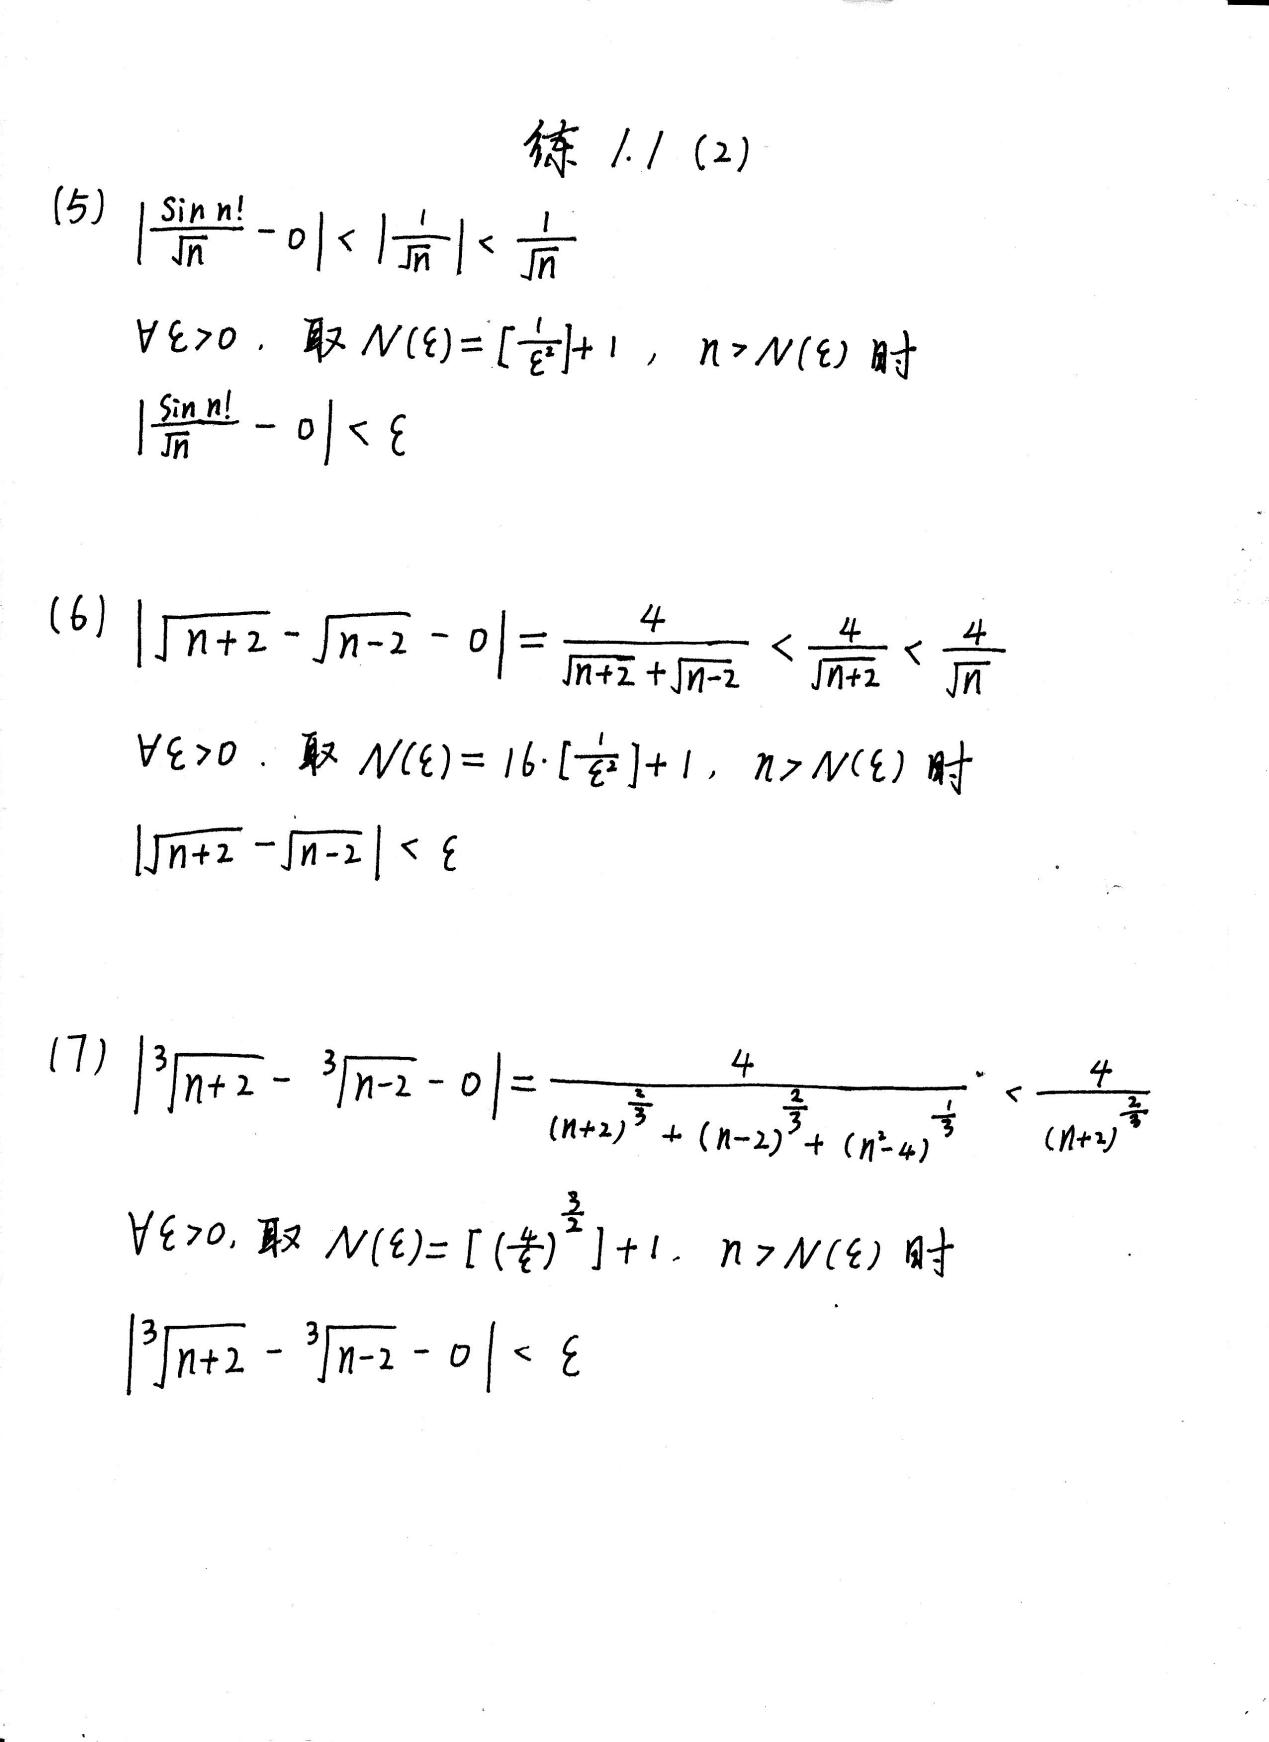 练 1.1 (2)
(5) |sin n!/√n - 0| < |1/√n| < 1/√n
∀ε>0. 取 N(ε)=[1/ε²]+1, n>N(ε) 时
|sin n!/√n - 0| < ε
(6) |√(n+2) - √(n-2) - 0| = 4/(√(n+2) + √(n-2)) < 4/√(n+2) < 4/√n
∀ε>0. 取 N(ε)= 16·[1/ε²]+1, n>N(ε) 时
|√(n+2) - √(n-2)| < ε
(7) |³√(n+2) - ³√(n-2) - 0| = 4/((n+2)^(2/3) + (n-2)^(2/3) + (n²-4)^(1/3)) < 4/(n+2)^(2/3)
∀ε>0, 取 N(ε)=[(4/ε)^(3/2)]+1. n>N(ε) 时
|³√(n+2) - ³√(n-2) - 0| < ε